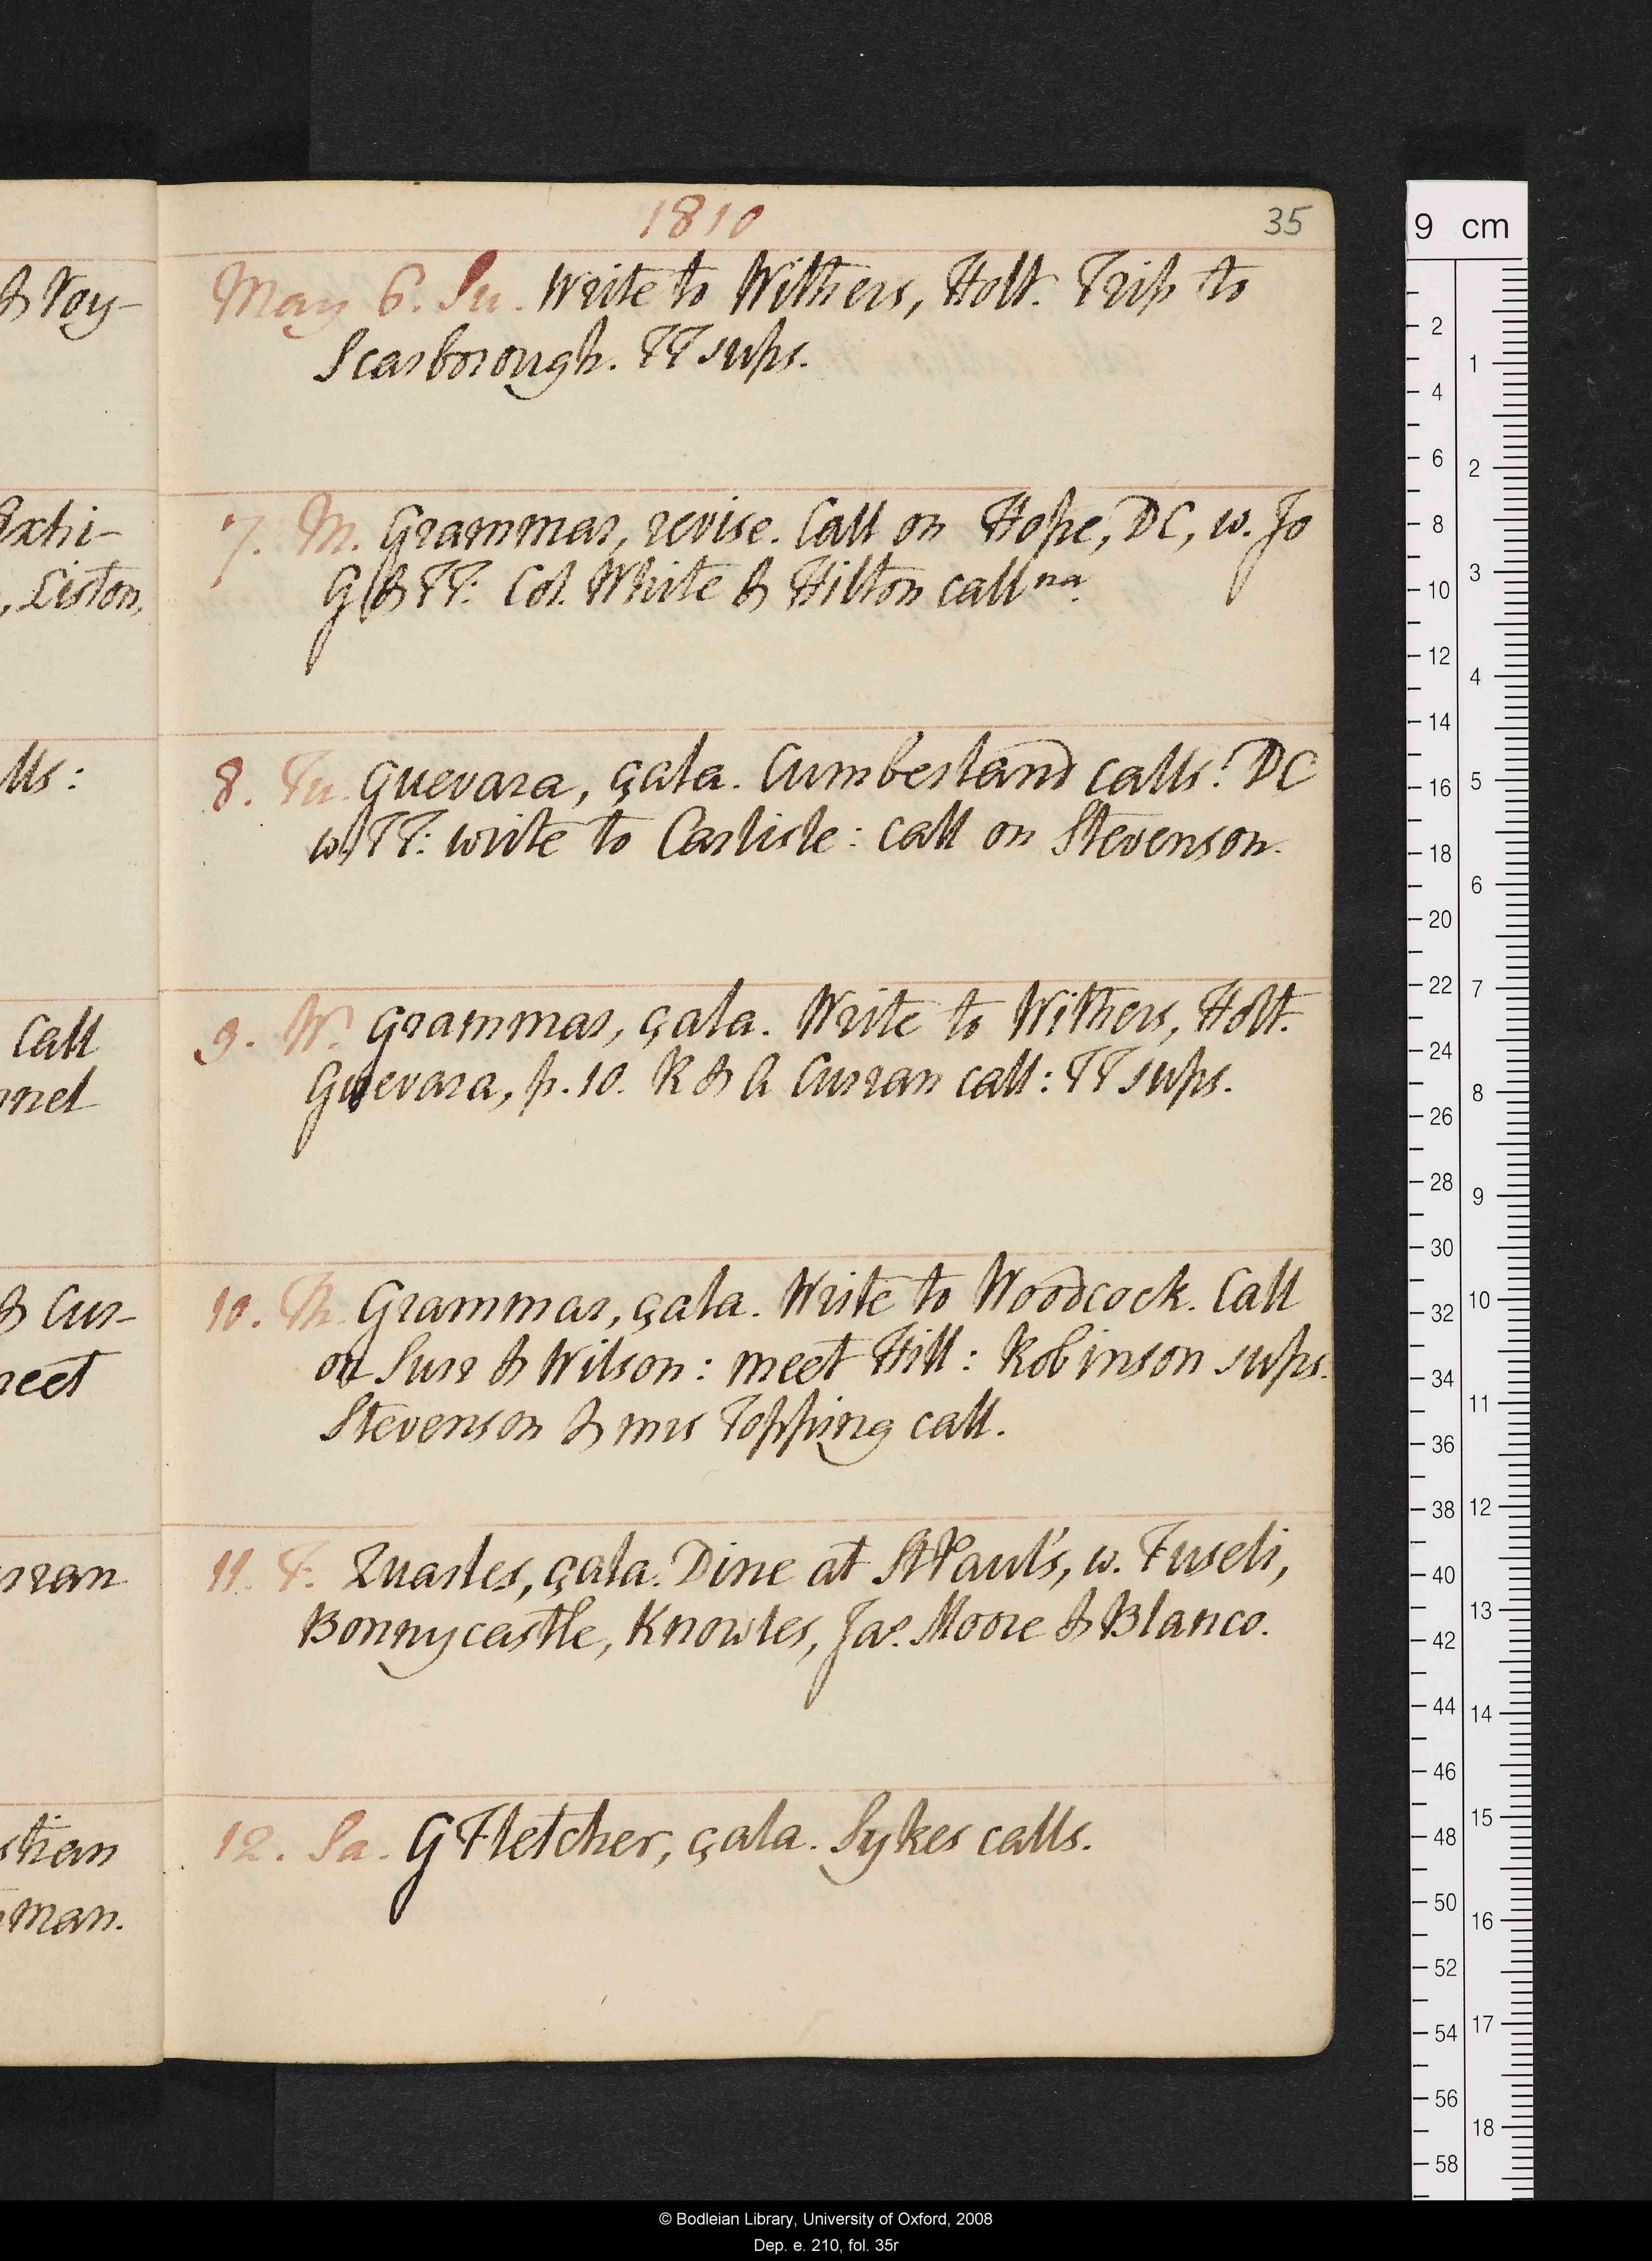 1810
35
May 6. Su. Write to Withers, Holt. Trip to
Scarborough. TT sups.
7. M. Grammar, revise. Call on Hope, DC, w. Jo
G & TT: Col. White & Hilton call na.
8. Tu. Guevara, çala. Cumberland calls: DC
w. TT: write to Carlisle: call on Stevenson.
9. W. Grammar, çala. Write to Withers, Holt.
Guevara, p. 10. R & A Curran call: TT sups.
10. Th. Grammar, çala. Write to Woodcock. Call
on Surr & Wilson: meet Hill: Robinson sups.
Stevenson & mrs Topping call.
11. F. Quarles, çala. Dine at St Paul's, w. Fuseli,
Bonnycastle, Knowles, Jas. Moore & Blanco.
12. Sa. G Fletcher, çala. Sykes calls.
& Voy-
Exhi-
, Liston,
lls:
Call
nnel
& Cur-
meet
rran
stian
man.
9 cm
2
4
6
8
10
12
14
16
18
20
22
24
26
28
30
32
34
36
38
40
42
44
46
48
50
52
54
56
58
1
2
3
4
5
6
7
8
9
10
11
12
13
14
15
16
17
18
© Bodleian Library, University of Oxford, 2008
Dep. e. 210, fol. 35r